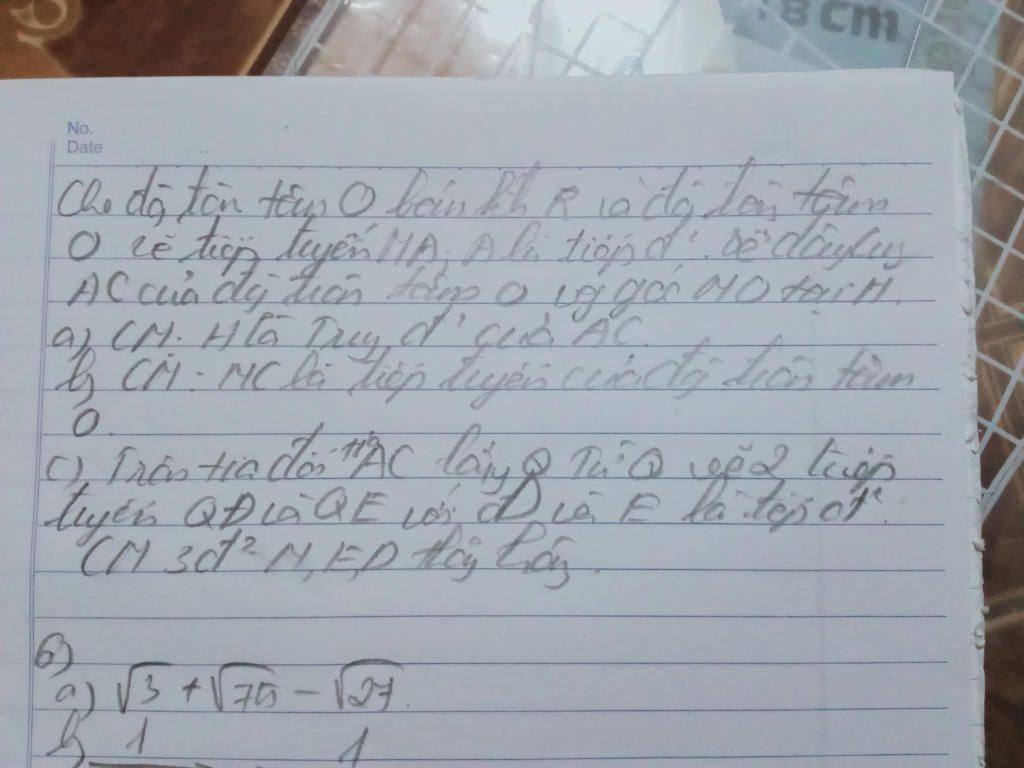 18 cm
No.
Date
Cho độ tòn tâm O bán kíh R và độ tòn tâm
O vẽ tiếp tuyến MA, A là tiếp đ². Vẽ dây
AC của độ tròn tâm O vg góc MO tại H.
a) CM: H là Trug đ² của AC.
b) CM: MC là tiếp tuyến của độ tròn tâm
O.
c) Trên tia đối AC lấy Q Từ Q vẽ 2 tiếp
tuyến QD và QE với D và E là tiếp đ².
CM 3đ² M, E, D thẳg hàg.
6)
a) √3 + √75 − √27.
b) 1 1